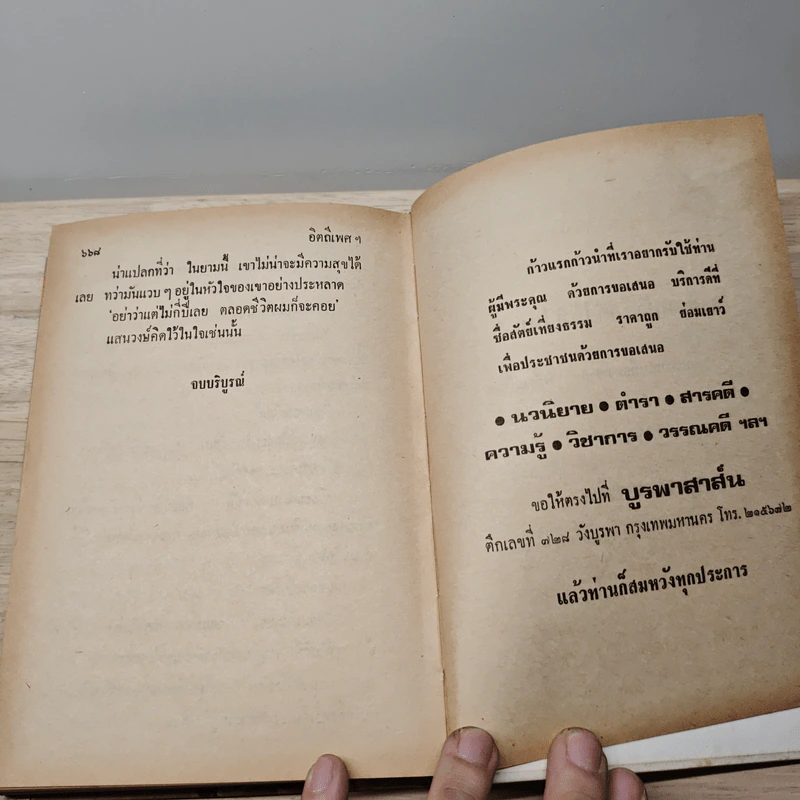 ๖๖๘
อิตถีเพศ ๆ
น่าแปลกที่ว่า ในยามนี้ เขาไม่น่าจะมีความสุขได้
เลย ทว่ามันแวบ ๆ อยู่ในหัวใจของเขาอย่างประหลาด
'อย่าว่าแต่ไม่กี่ปีเลย ตลอดชีวิตผมก็จะคอย'
แสนวงษ์คิดไว้ในใจเช่นนั้น
จบบริบูรณ์
ก้าวแรกก้าวนำที่เราอยากรับใช้ท่าน
ผู้มีพระคุณ ด้วยการขอเสนอ บริการดีที่
ซื่อสัตย์เที่ยงธรรม ราคาถูก ย่อมเยาว์
เพื่อประชาชนด้วยการขอเสนอ
● นวนิยาย ● ตำรา ● สารคดี ●
ความรู้ ● วิชาการ ● วรรณคดี ฯลฯ
ขอให้ตรงไปที่ บูรพาสาส์น
ตึกเลขที่ ๓๒๘ วังบูรพา กรุงเทพมหานคร โทร. ๒๑๕๖๗๒
แล้วท่านก็สมหวังทุกประการ